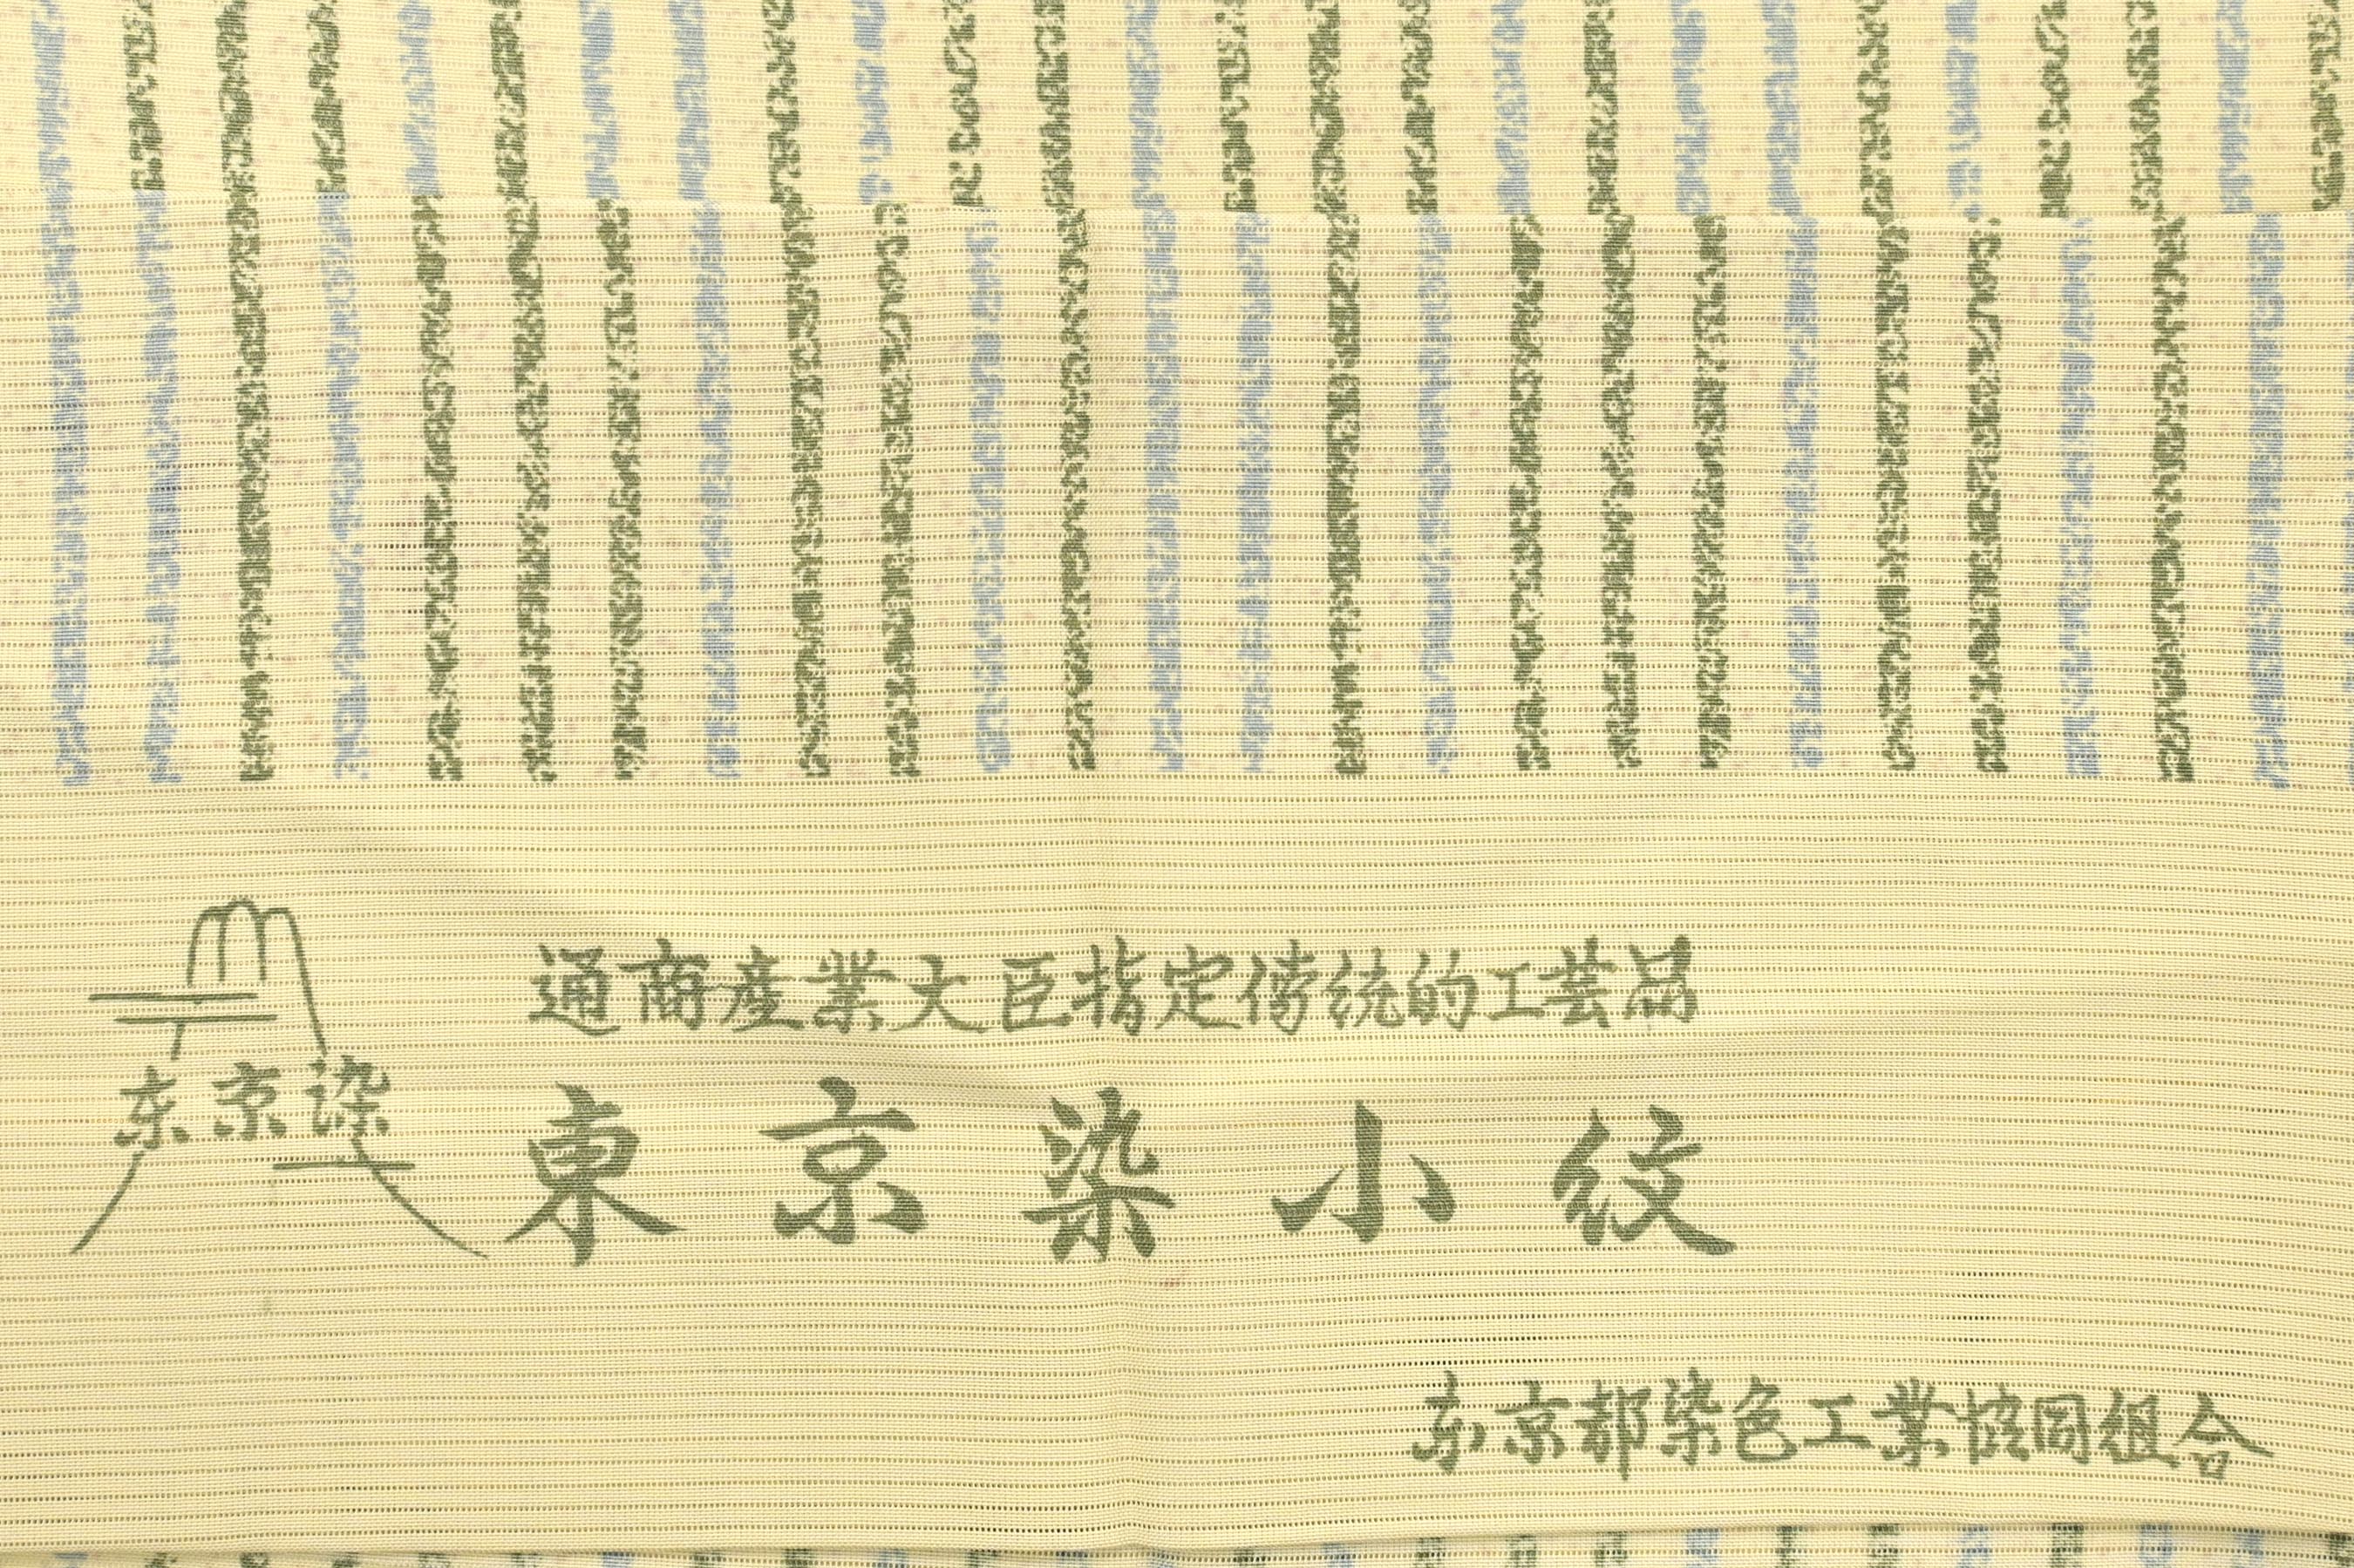 通商産業大臣指定伝統的工芸品
东京染
東京染小紋
东京都染色工業協同組合